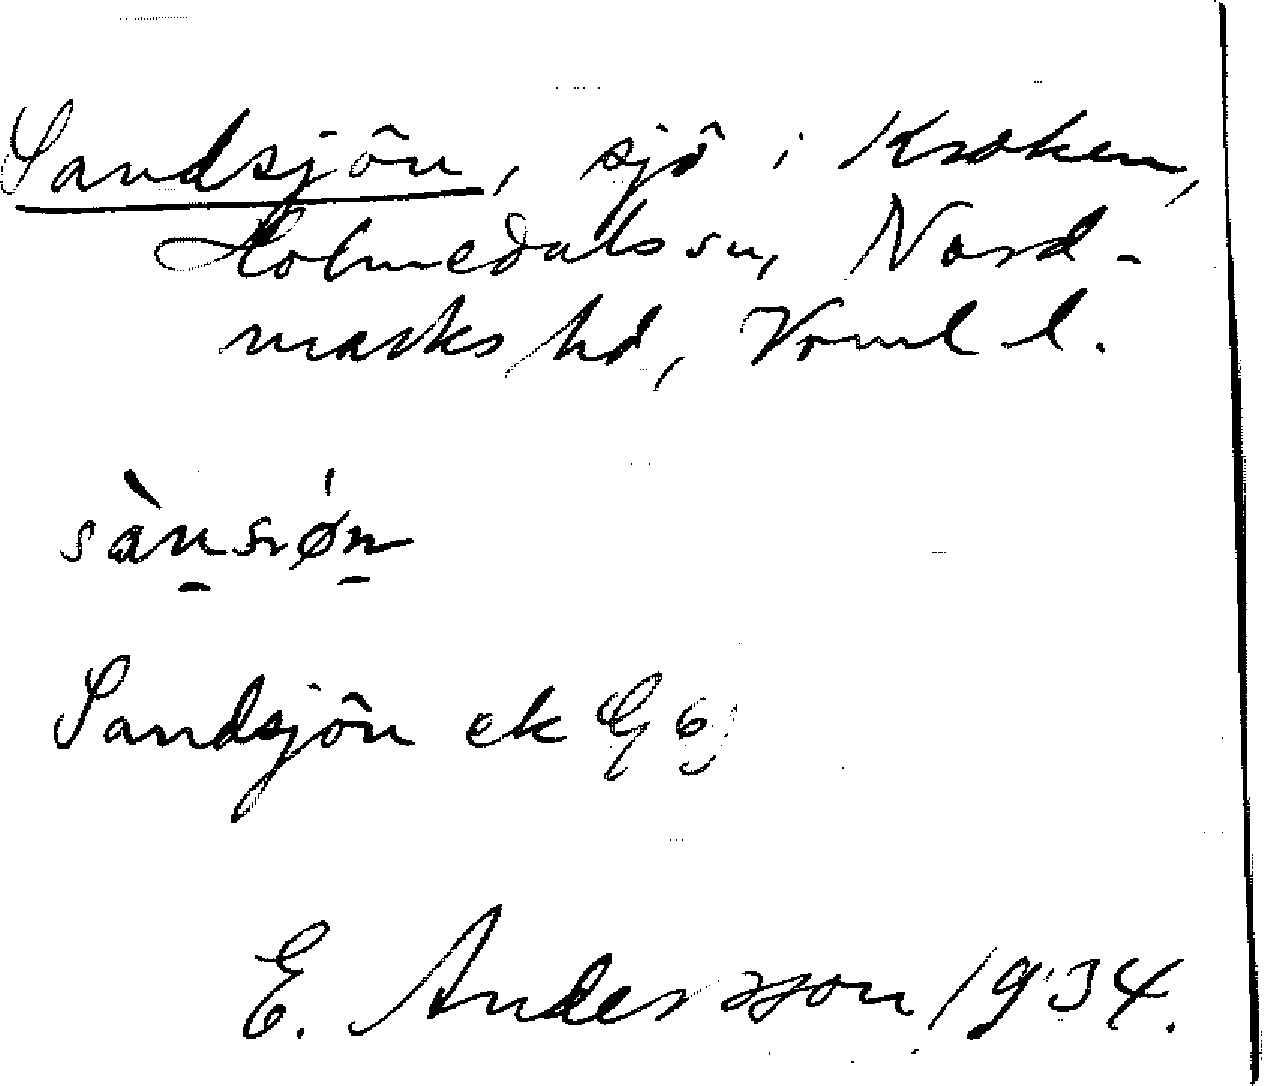 Sandsjön, sjö i Kroken,
Holmedals sn, Nord-
marks hd, Vrml l.
sànsıøn
Sandsjön ek G
E. Andersson 1934.